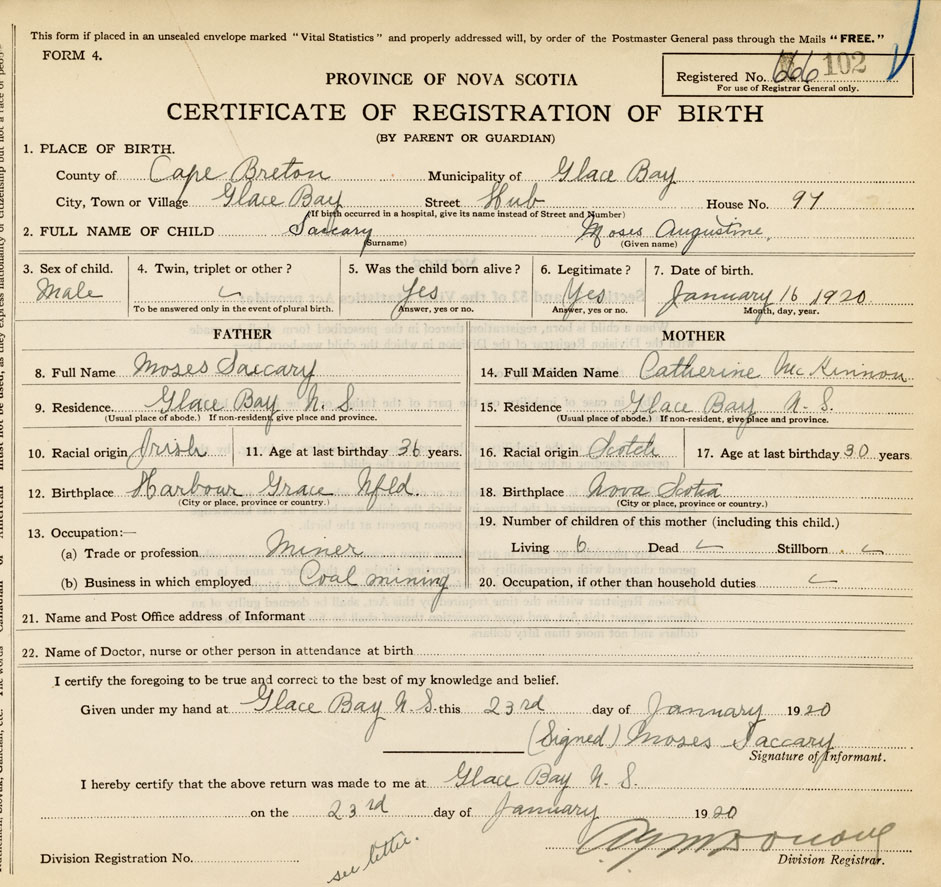 This form if placed in an unsealed envelope marked "Vital Statistics" and properly addressed will, by order of the Postmaster General pass through the Mails "FREE."
FORM 4.
PROVINCE OF NOVA SCOTIA
Registered No. 666 102
For use of Registrar General only.
CERTIFICATE OF REGISTRATION OF BIRTH
(BY PARENT OR GUARDIAN)
1. PLACE OF BIRTH.
County of Cape Breton Municipality of Glace Bay
City, Town or Village Glace Bay Street Hub House No. 97
(If birth occurred in a hospital, give its name instead of Street and Number)
2. FULL NAME OF CHILD Saccary Moses Augustine
(Surname) (Given name)
3. Sex of child. 4. Twin, triplet or other? 5. Was the child born alive? 6. Legitimate? 7. Date of birth.
Male Yes Yes January 16 1920
To be answered only in the event of plural birth. Answer, yes or no. Answer, yes or no. Month, day, year.
FATHER MOTHER
8. Full Name Moses Saccary 14. Full Maiden Name Catherine McKinnon
9. Residence Glace Bay N. S. 15. Residence Glace Bay N. S.
(Usual place of abode.) If non-resident, give place and province. (Usual place of abode.) If non-resident, give place and province.
10. Racial origin Irish 11. Age at last birthday 36 years. 16. Racial origin Scotch 17. Age at last birthday 30 years
12. Birthplace Harbour Grace Nfld. 18. Birthplace Nova Scotia
(City or place, province or country.) (City or place, province or country.)
13. Occupation:— 19. Number of children of this mother (including this child.)
(a) Trade or profession Miner Living 6 Dead Stillborn
(b) Business in which employed Coal mining 20. Occupation, if other than household duties
21. Name and Post Office address of Informant
22. Name of Doctor, nurse or other person in attendance at birth
I certify the foregoing to be true and correct to the best of my knowledge and belief.
Given under my hand at Glace Bay N. S. this 23rd day of January 1920
(Signed) Moses Saccary
Signature of Informant.
I hereby certify that the above return was made to me at Glace Bay N. S.
on the 23rd day of January 1920
Division Registration No. see letter. Division Registrar.